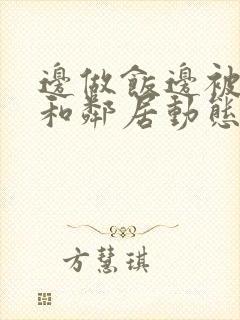 邊做飯邊被
和鄰居動態
方慧琪